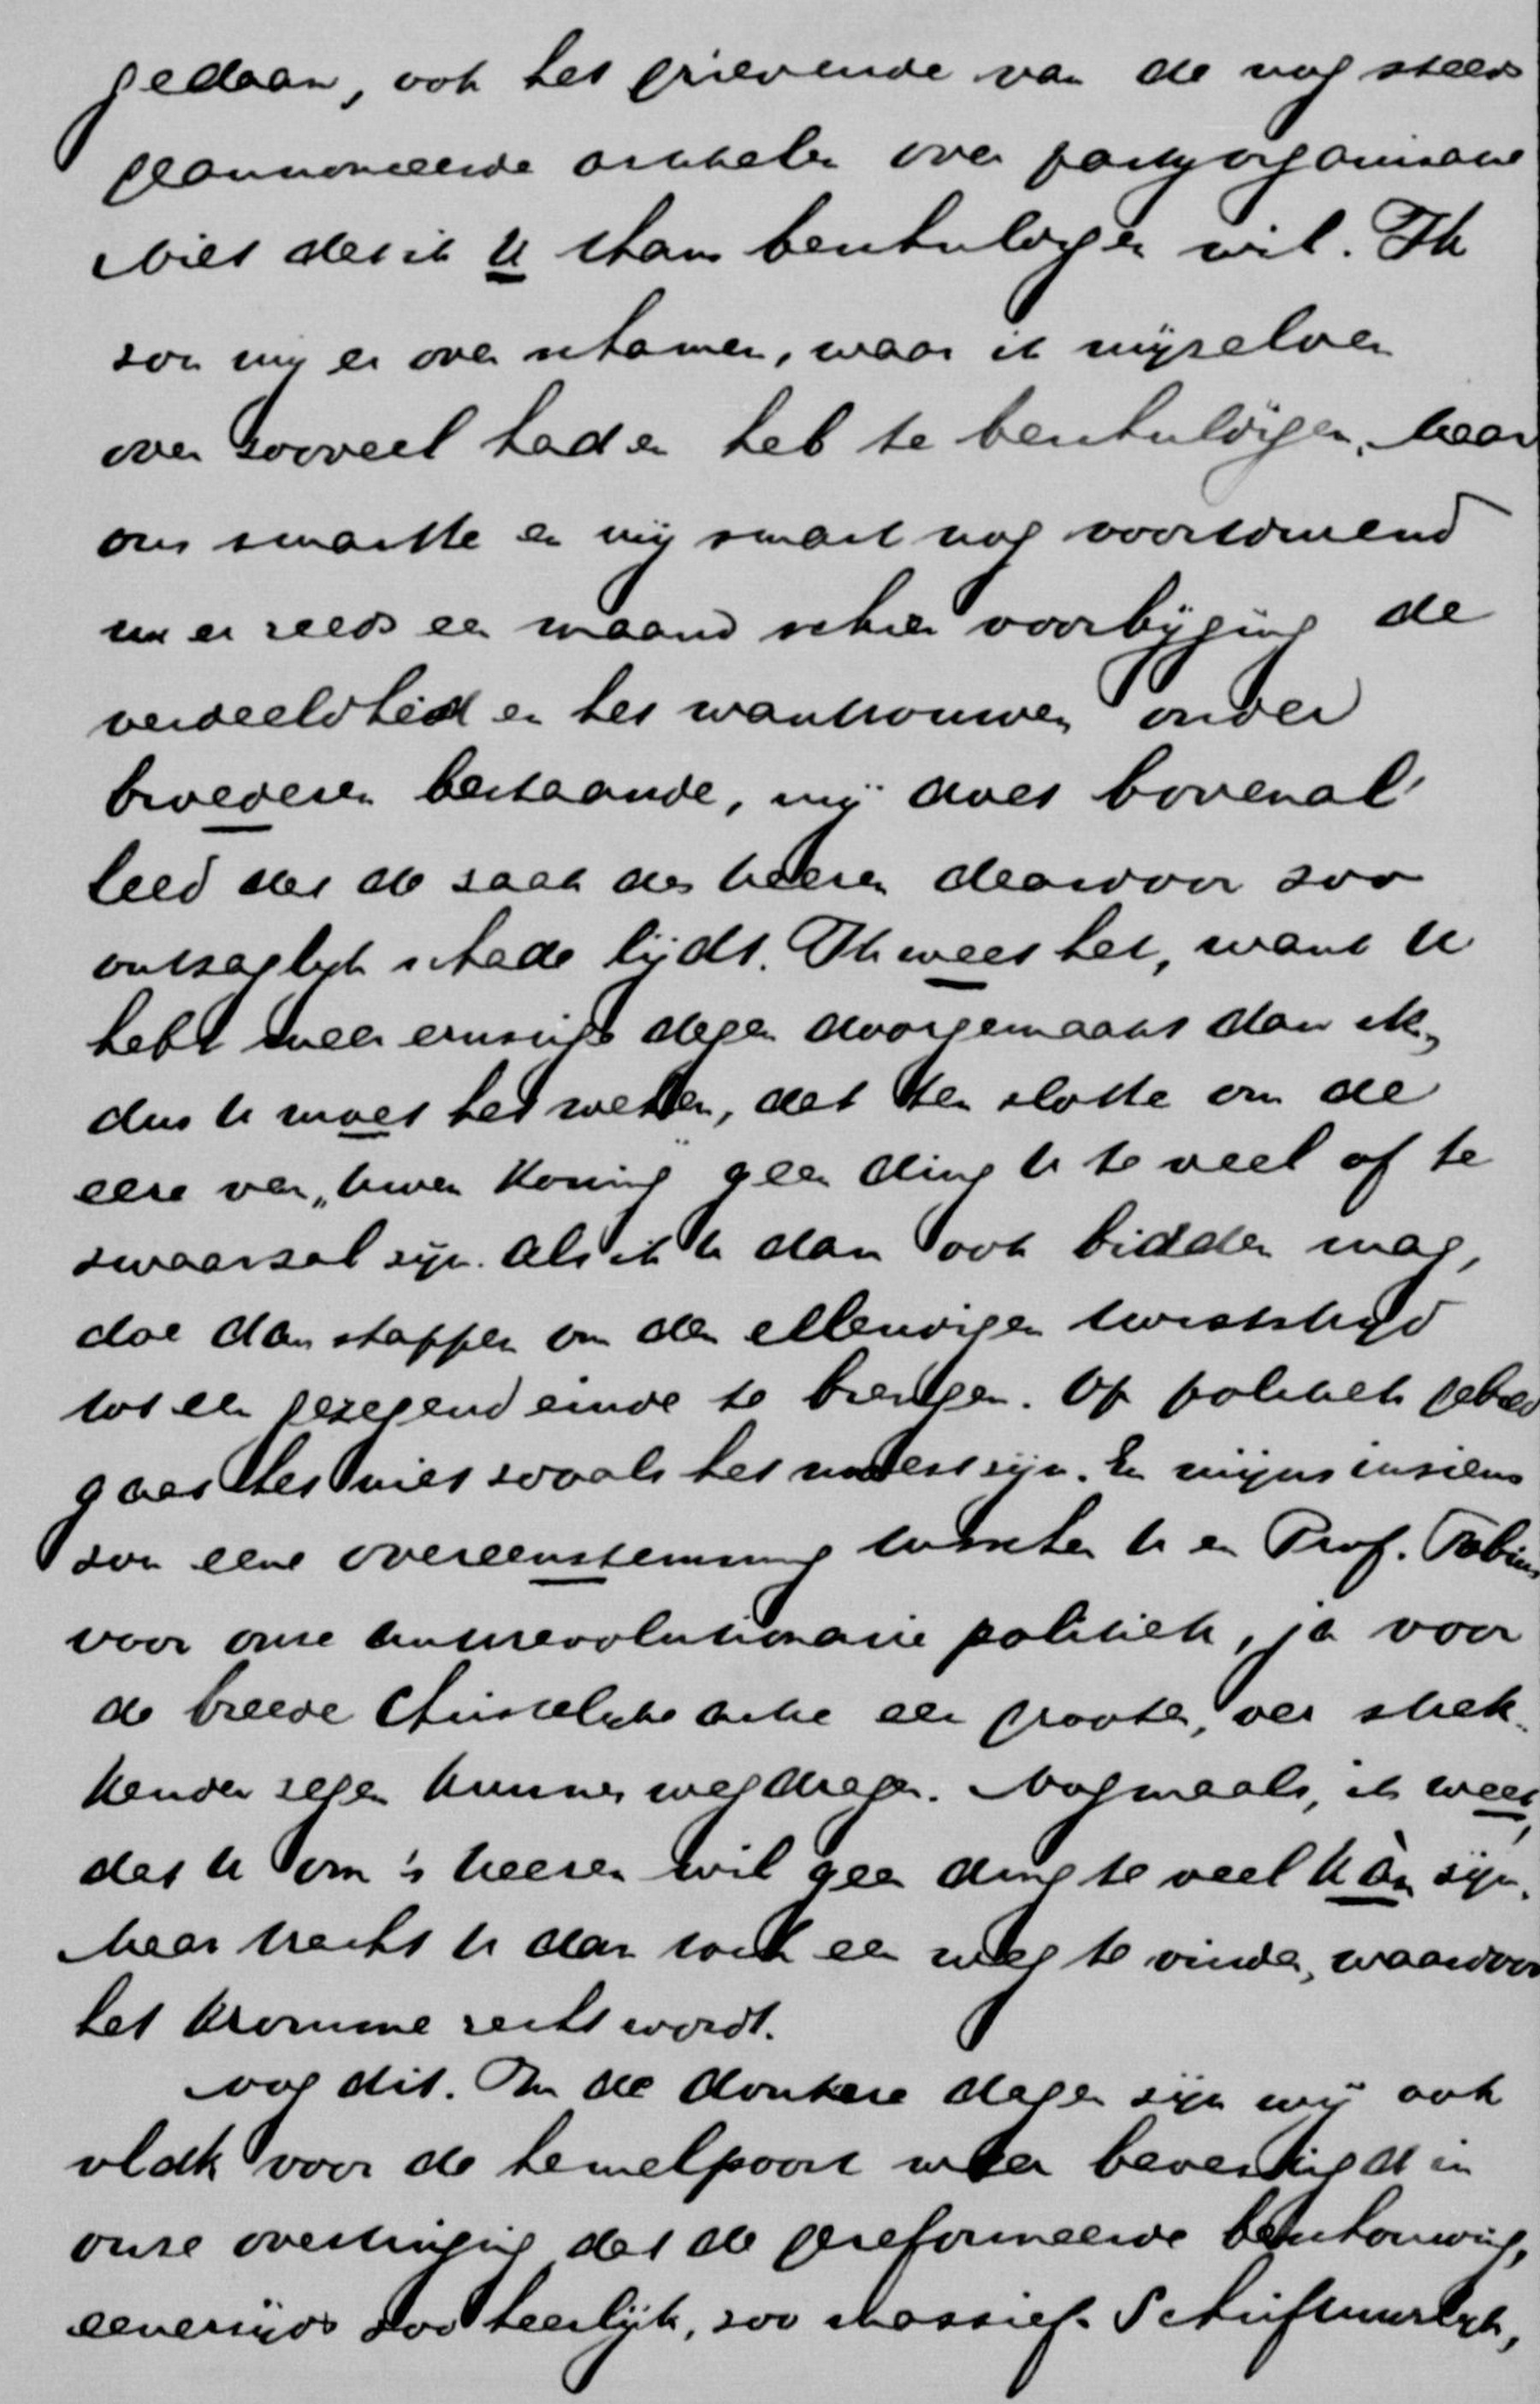 gedaan, ook het grievende van de nog steeds
geannonceerde artikelen over partijorganisatie
Niet dat ik U thans beschuldigen wil. Ik
zou mij er over schamen, waar ik mijzelven
over zooveel had en heb te beschuldigen. Maar
ons smartte en mij smart nog voortdurend
nu er reeds een maand schier voorbijging de
verdeeldheid en het wantrouwen onder
broederen bestaande, mij doet bovenal
leed dat de zaak des Heeren daardoor zoo
ontzaglijk schade lijdt. Ik weet het, want U
hebt meer ernstige dagen doorgemaakt dan ik,
dus U moet het weten, dat ten slotte om de
eere van „Uwen Koning" geen ding U te veel of te
zwaar zal zijn. Als ik U dan ook bidden mag,
doe dan stappen om den ellendigen twiststrijd
tot een gezegend einde te brengen. Op politiek gebied
gaat het niet zooals het moest zijn. En mijns inziens
zou eene overeenstemming tusschen U en Prof. Fabius
voor onze Antirevolutionaire politiek, ja voor
de breede Christelijke actie een grooten, ver strek-
kenden zegen kunnen wegdragen. Nogmaals, ik weet,
dat U om 's Heeren wil geen ding te veel kàn zijn.
Maar tracht U dan toch een weg te vinden, waardoor
het kromme recht wordt.
Nog dit. In de donkere dagen zijn wij ook
vlak voor de hemelpoort weer bevestigd in
onze overtuiging dat de gereformeerde beschouwing,
eenerzijds zoo heerlijk, zoo massief-Schriftuurlijk,